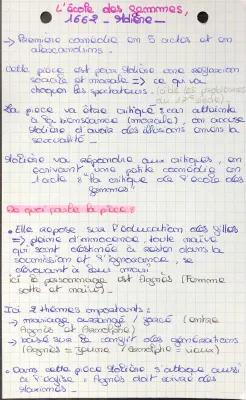 L'école des femmes,
1662 - Molière -
→ Première comédie en 5 actes et en
alexandrins.
Cette pièce est pour Molière une réflexion
sociale et morale → ce qui va
choquer les spectateurs.
La pièce va être critiqué : car atteinte
à la bienséance (morale), on accuse
Molière d'avoir des illusions envers la
sexualité.
Molière va répondre aux critiques, en
écrivant une petite comédie en
1 acte : "la critique de l'école des
femmes"
De quoi parle la pièce :
• Elle repose sur l'éducation des filles
→ pleine d'innocence, toute naïve
qui sont destinée à rester dans la
soumission et l'ignorance, se
dévouant à leur mari
ici le personnage est Agnès (femme
sotte et naïve).
Ici 2 thèmes importants :
→ mariage arrangé / forcé (entre
Agnès et Arnolphe)
→ basé sur le conflit des générations
(Agnès = jeune / Arnolphe = vieux)
• Dans cette pièce Molière s'attaque aussi
à l'église : Agnès doit écrire des
maximes -